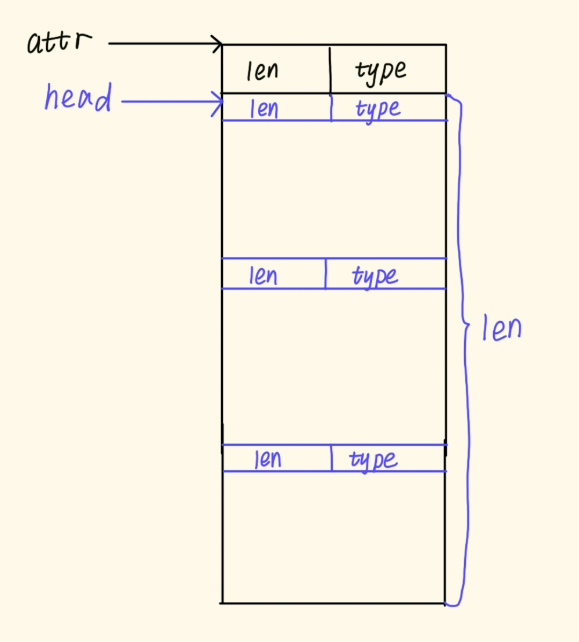 attr
len type
head
len type
len type
len
len type